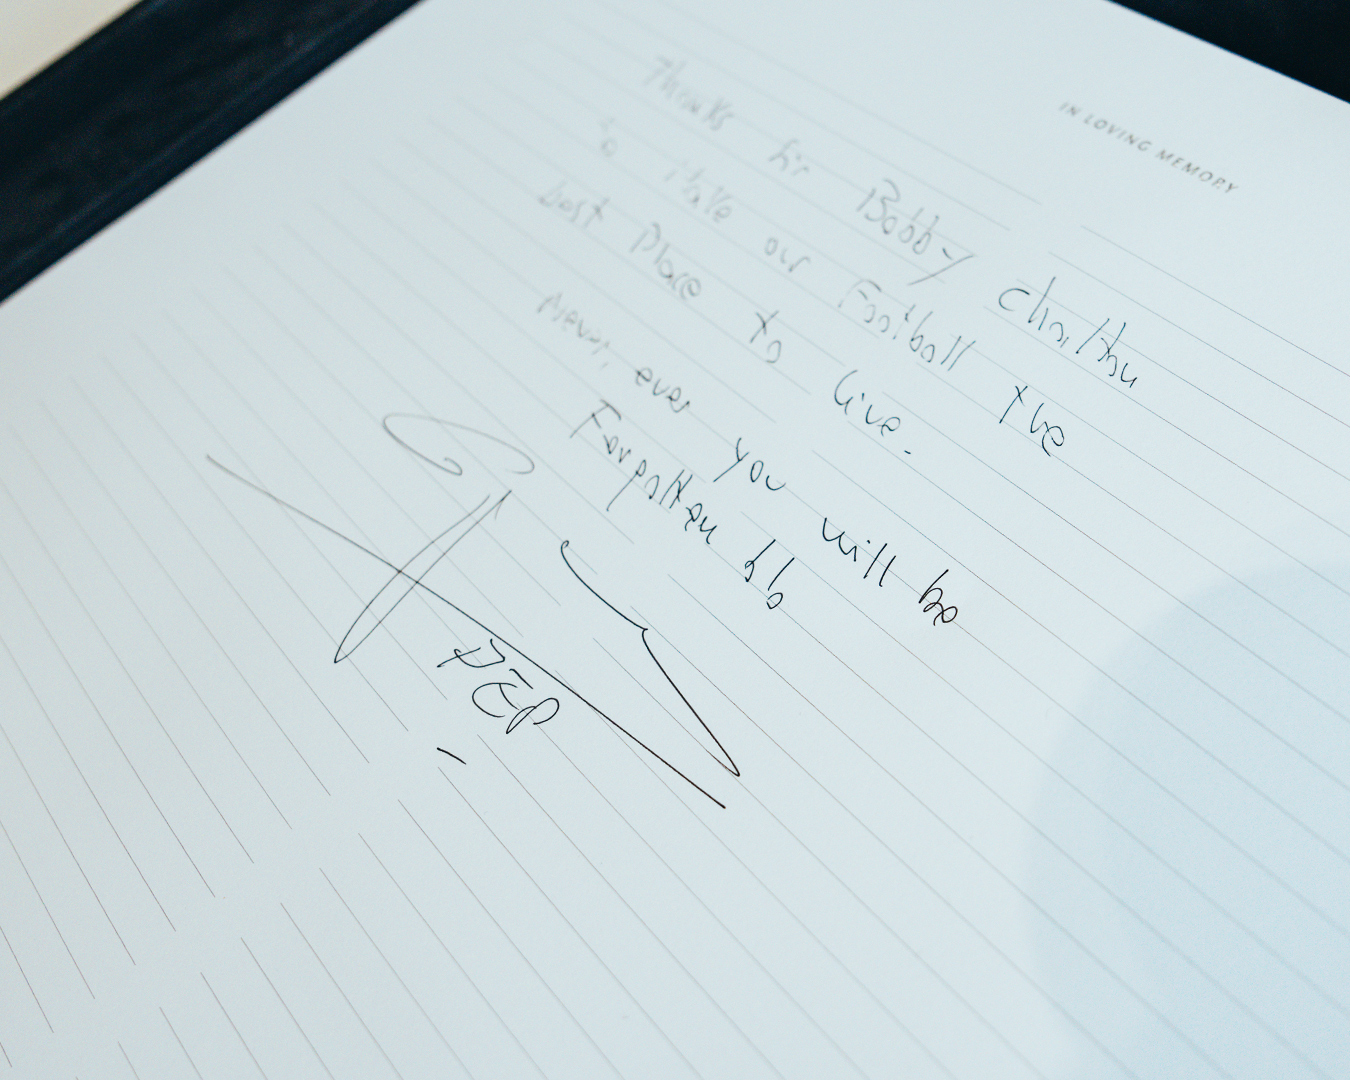 IN LOVING MEMORY
Thanks Sir Bobby Charlton
to Make our Football the
best Place to live.
Never, ever you will be
Forgotten
PEP